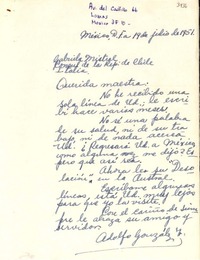 Av. del Castillo 66
Lomas
México D.F.
México, D.F. 19 de julio de 1951.
Gabriela Mistral
Consul de la Rep. de Chile
Italia
Querida maestra:
No he recibido una
sola línea de Ud., le escri
bí hace varios meses!
No sé una palabra
de su salud, ni de su tra
bajo, ni de nada acerca
Ud. ¿Regresará Ud. a México
como algunos me dijo? Es
pero que así sea.
Ahora leo su "Deso
lación" en la Austral.
Escríbame algunas
líneas, está Ud. muy lejos
para que yo la visite!
Por el cariño de siem
pre le abraza su amigo y
servidor
Adolfo González